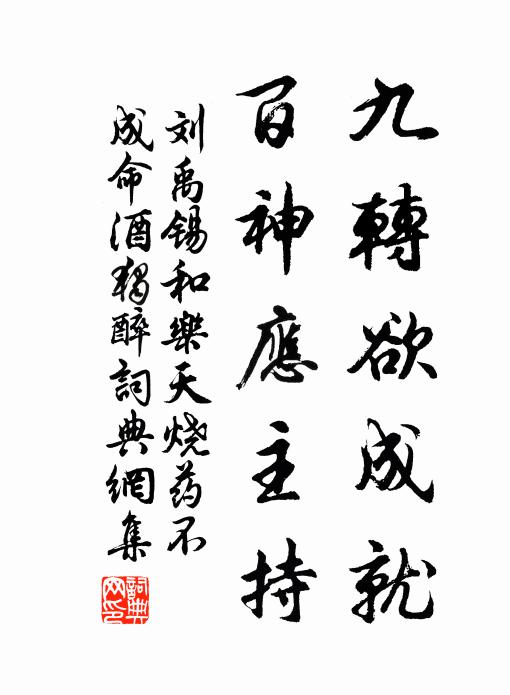 九轉欲成就
百神應主持
刘禹锡和樂天烧药不
成命酒獨醉詞典網集
詞典网印